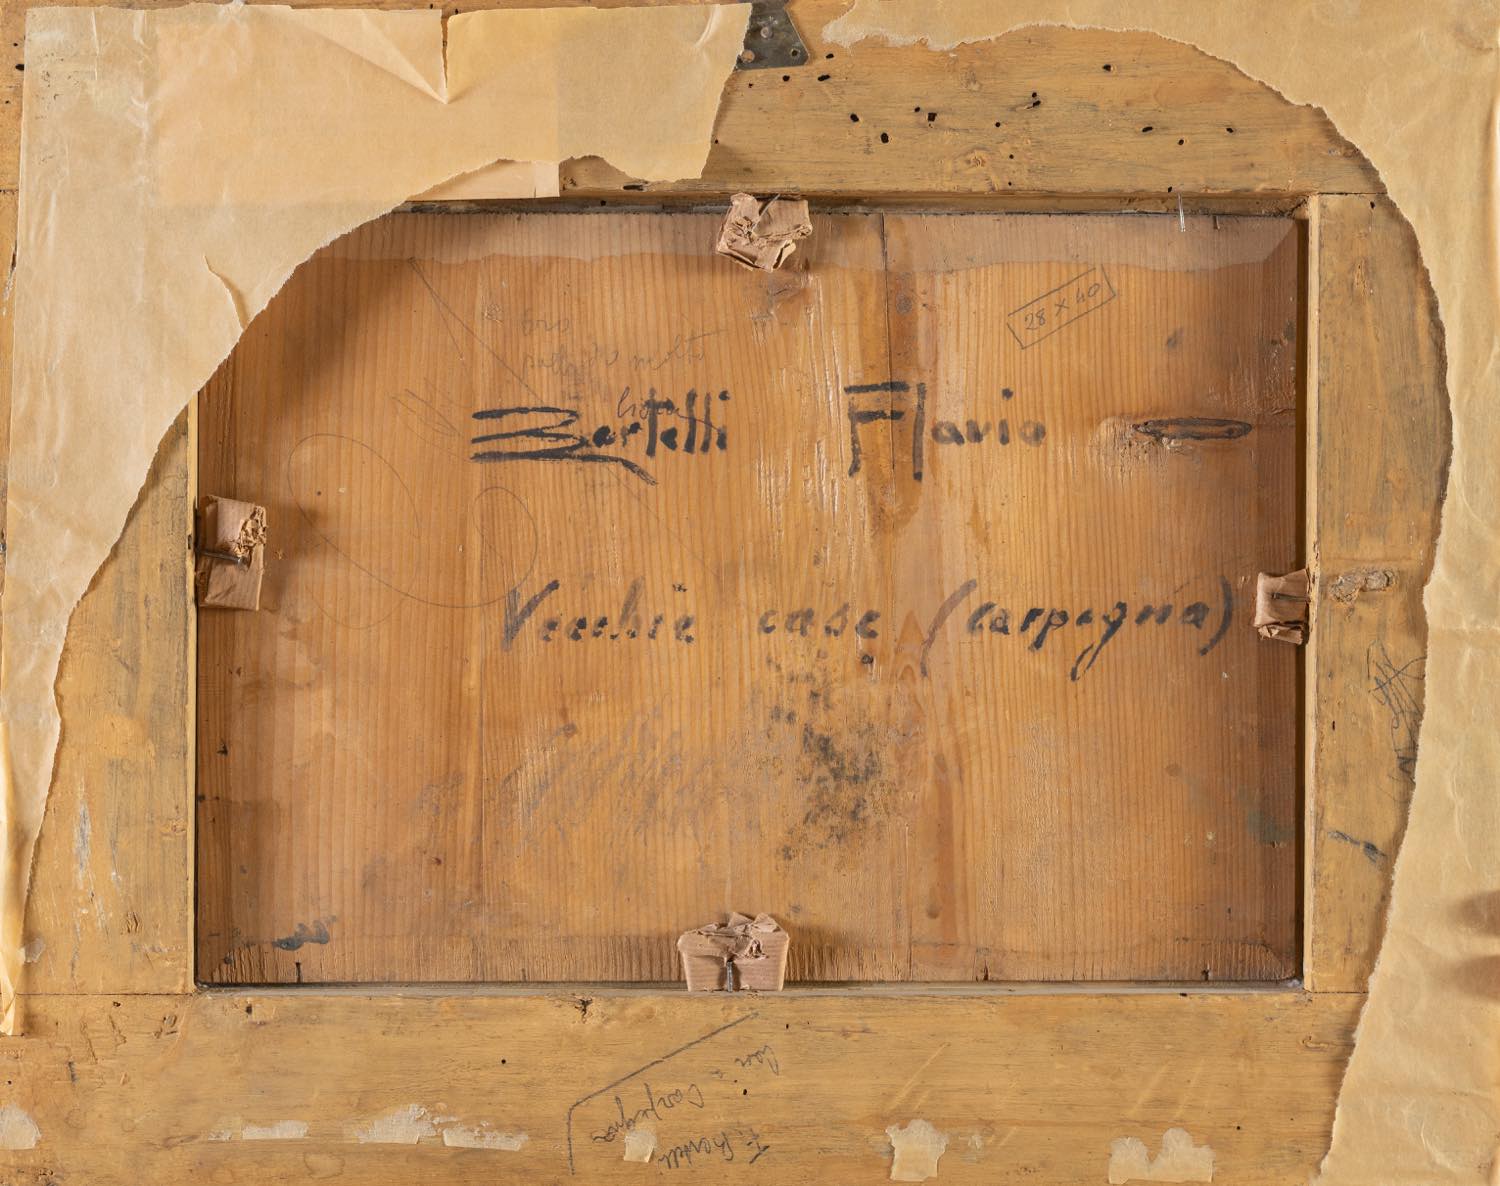 28 x 40
molto
Bertelli Flavio
Vecchie case (Carpegna)
Case a
Carpegna
F. Bertelli